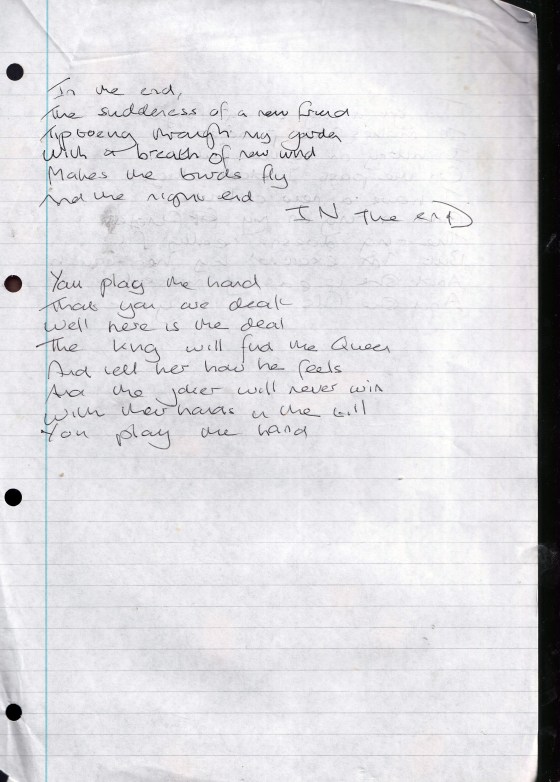 In the end,
The suddeness of a new friend
Tiptoeing through my garden
With a breath of new wind
Makes the birds fly
And the night end
IN The enD
You play the hand
That you are dealt
Well here is the deal
The King will find the Queen
And tell her how he feels
And the joker will never win
With their hands in the till
You play the hand